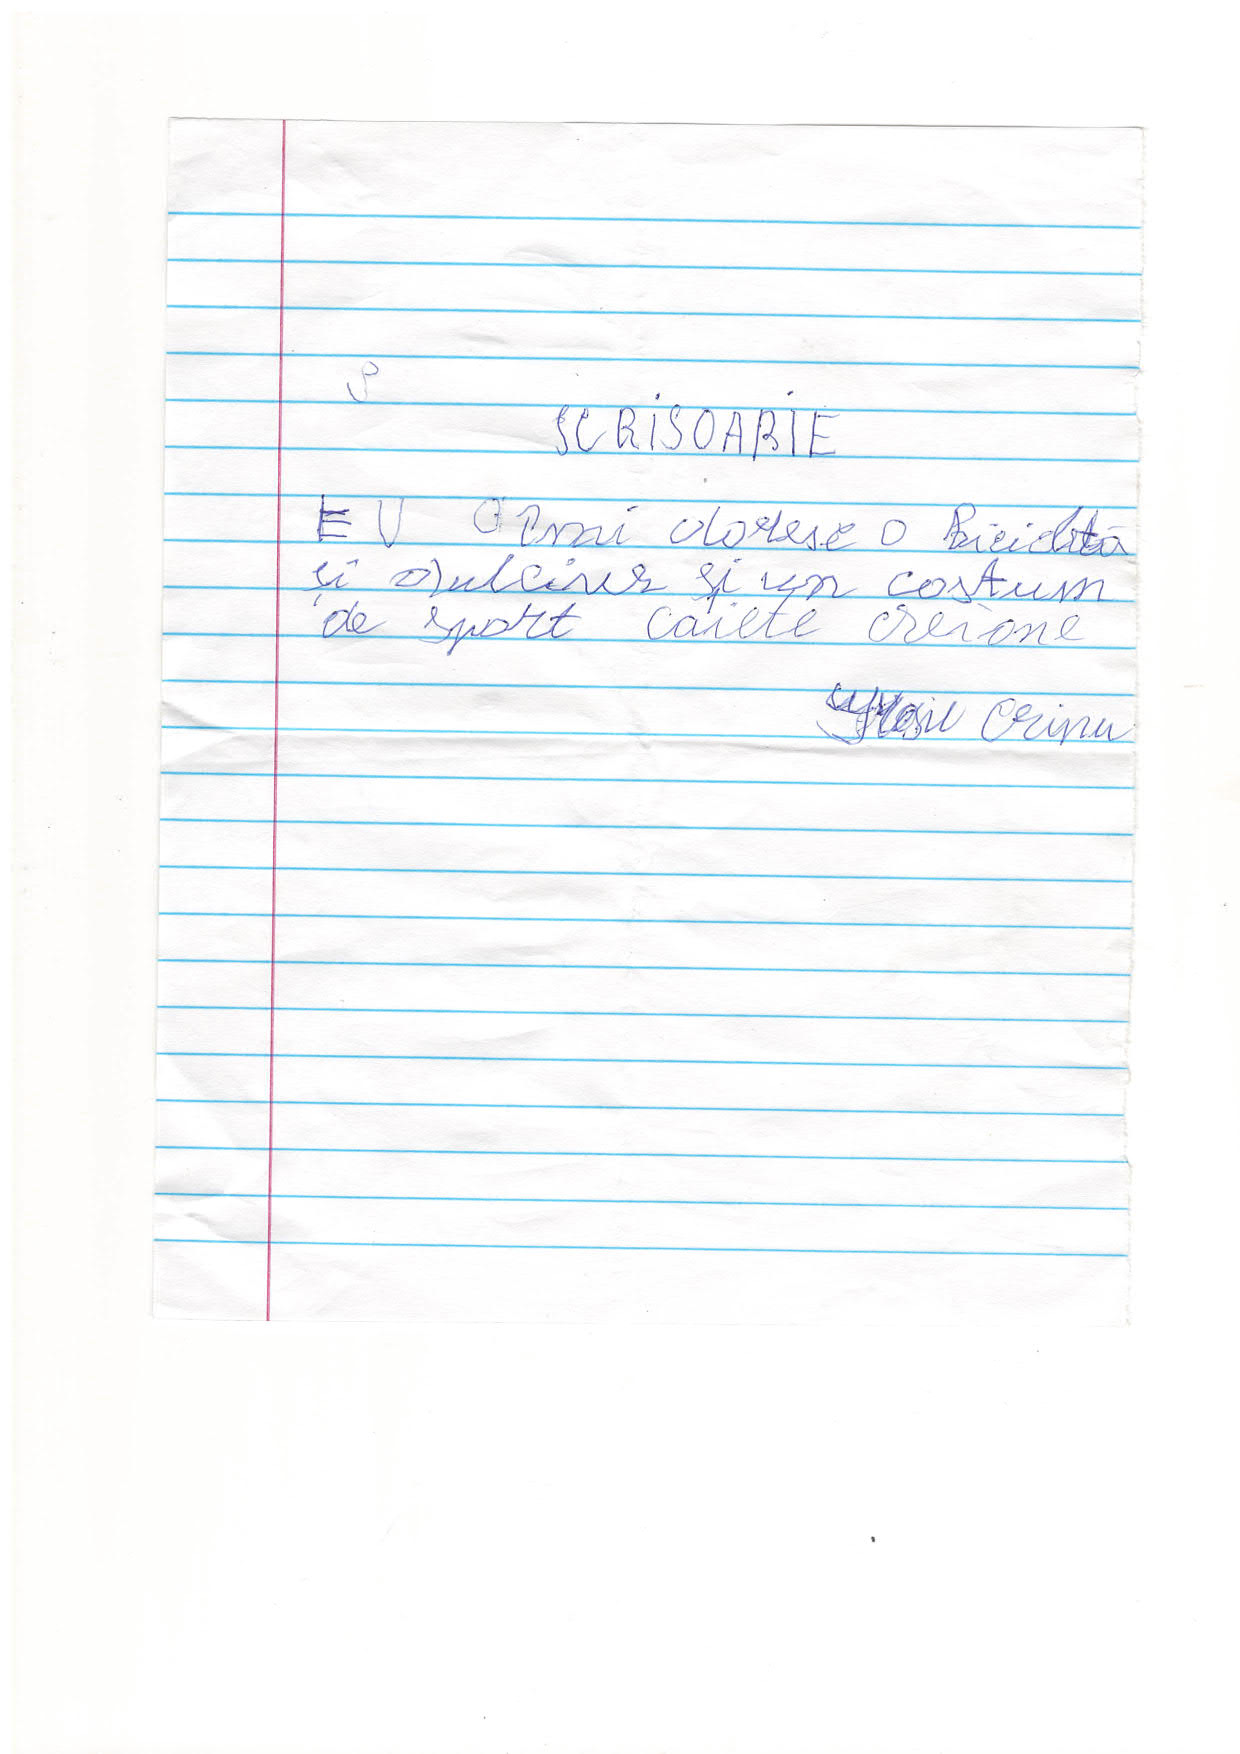 S
SCRISOARIE
EV Îmi doresc o Bicicletă
și dulciur și un costum
de sport caiete creione
Crinu